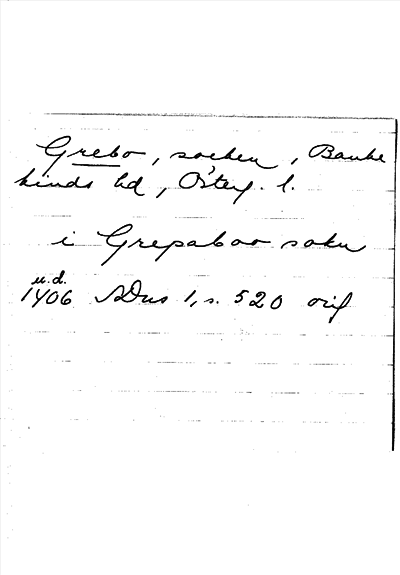 Grebo, socken, Banke
kinds hd, Österg. l.
i Grepaboo sokn
u.d.
1406 SDns 1, s. 520 orig